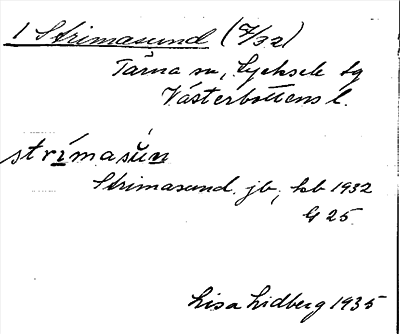 1 Strimasund (7/32)
Tärna sn, Lycksele tg
Västerbottens l.
strímasún
Strimasund. jb, kb 1932
G 25.
Lisa Lidberg 1935